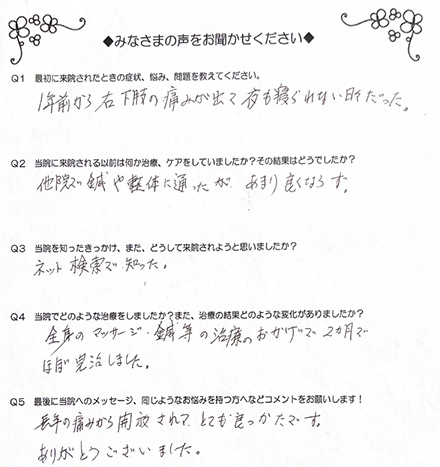 ◆みなさまの声をお聞かせください◆
Q1 最初に来院されたときの症状、悩み、問題を教えてください。
1年前から右下肢の痛みが出て夜も寝られない日々だった。
Q2 当院に来院される以前は何か治療、ケアをしていましたか？その結果はどうでしたか？
他院で鍼や整体に通ったが、あまり良くならず。
Q3 当院を知ったきっかけ、また、どうして来院されようと思いましたか？
ネット検索で知った。
Q4 当院でどのような治療をしましたか？また、治療の結果どのような変化がありましたか？
全身のマッサージ・鍼等の治療のおかげで2カ月で
ほぼ完治しました。
Q5 最後に当院へのメッセージ、同じようなお悩みを持つ方へなどコメントをお願いします！
長年の痛みから開放されて、とても良かったです。
ありがとうございました。